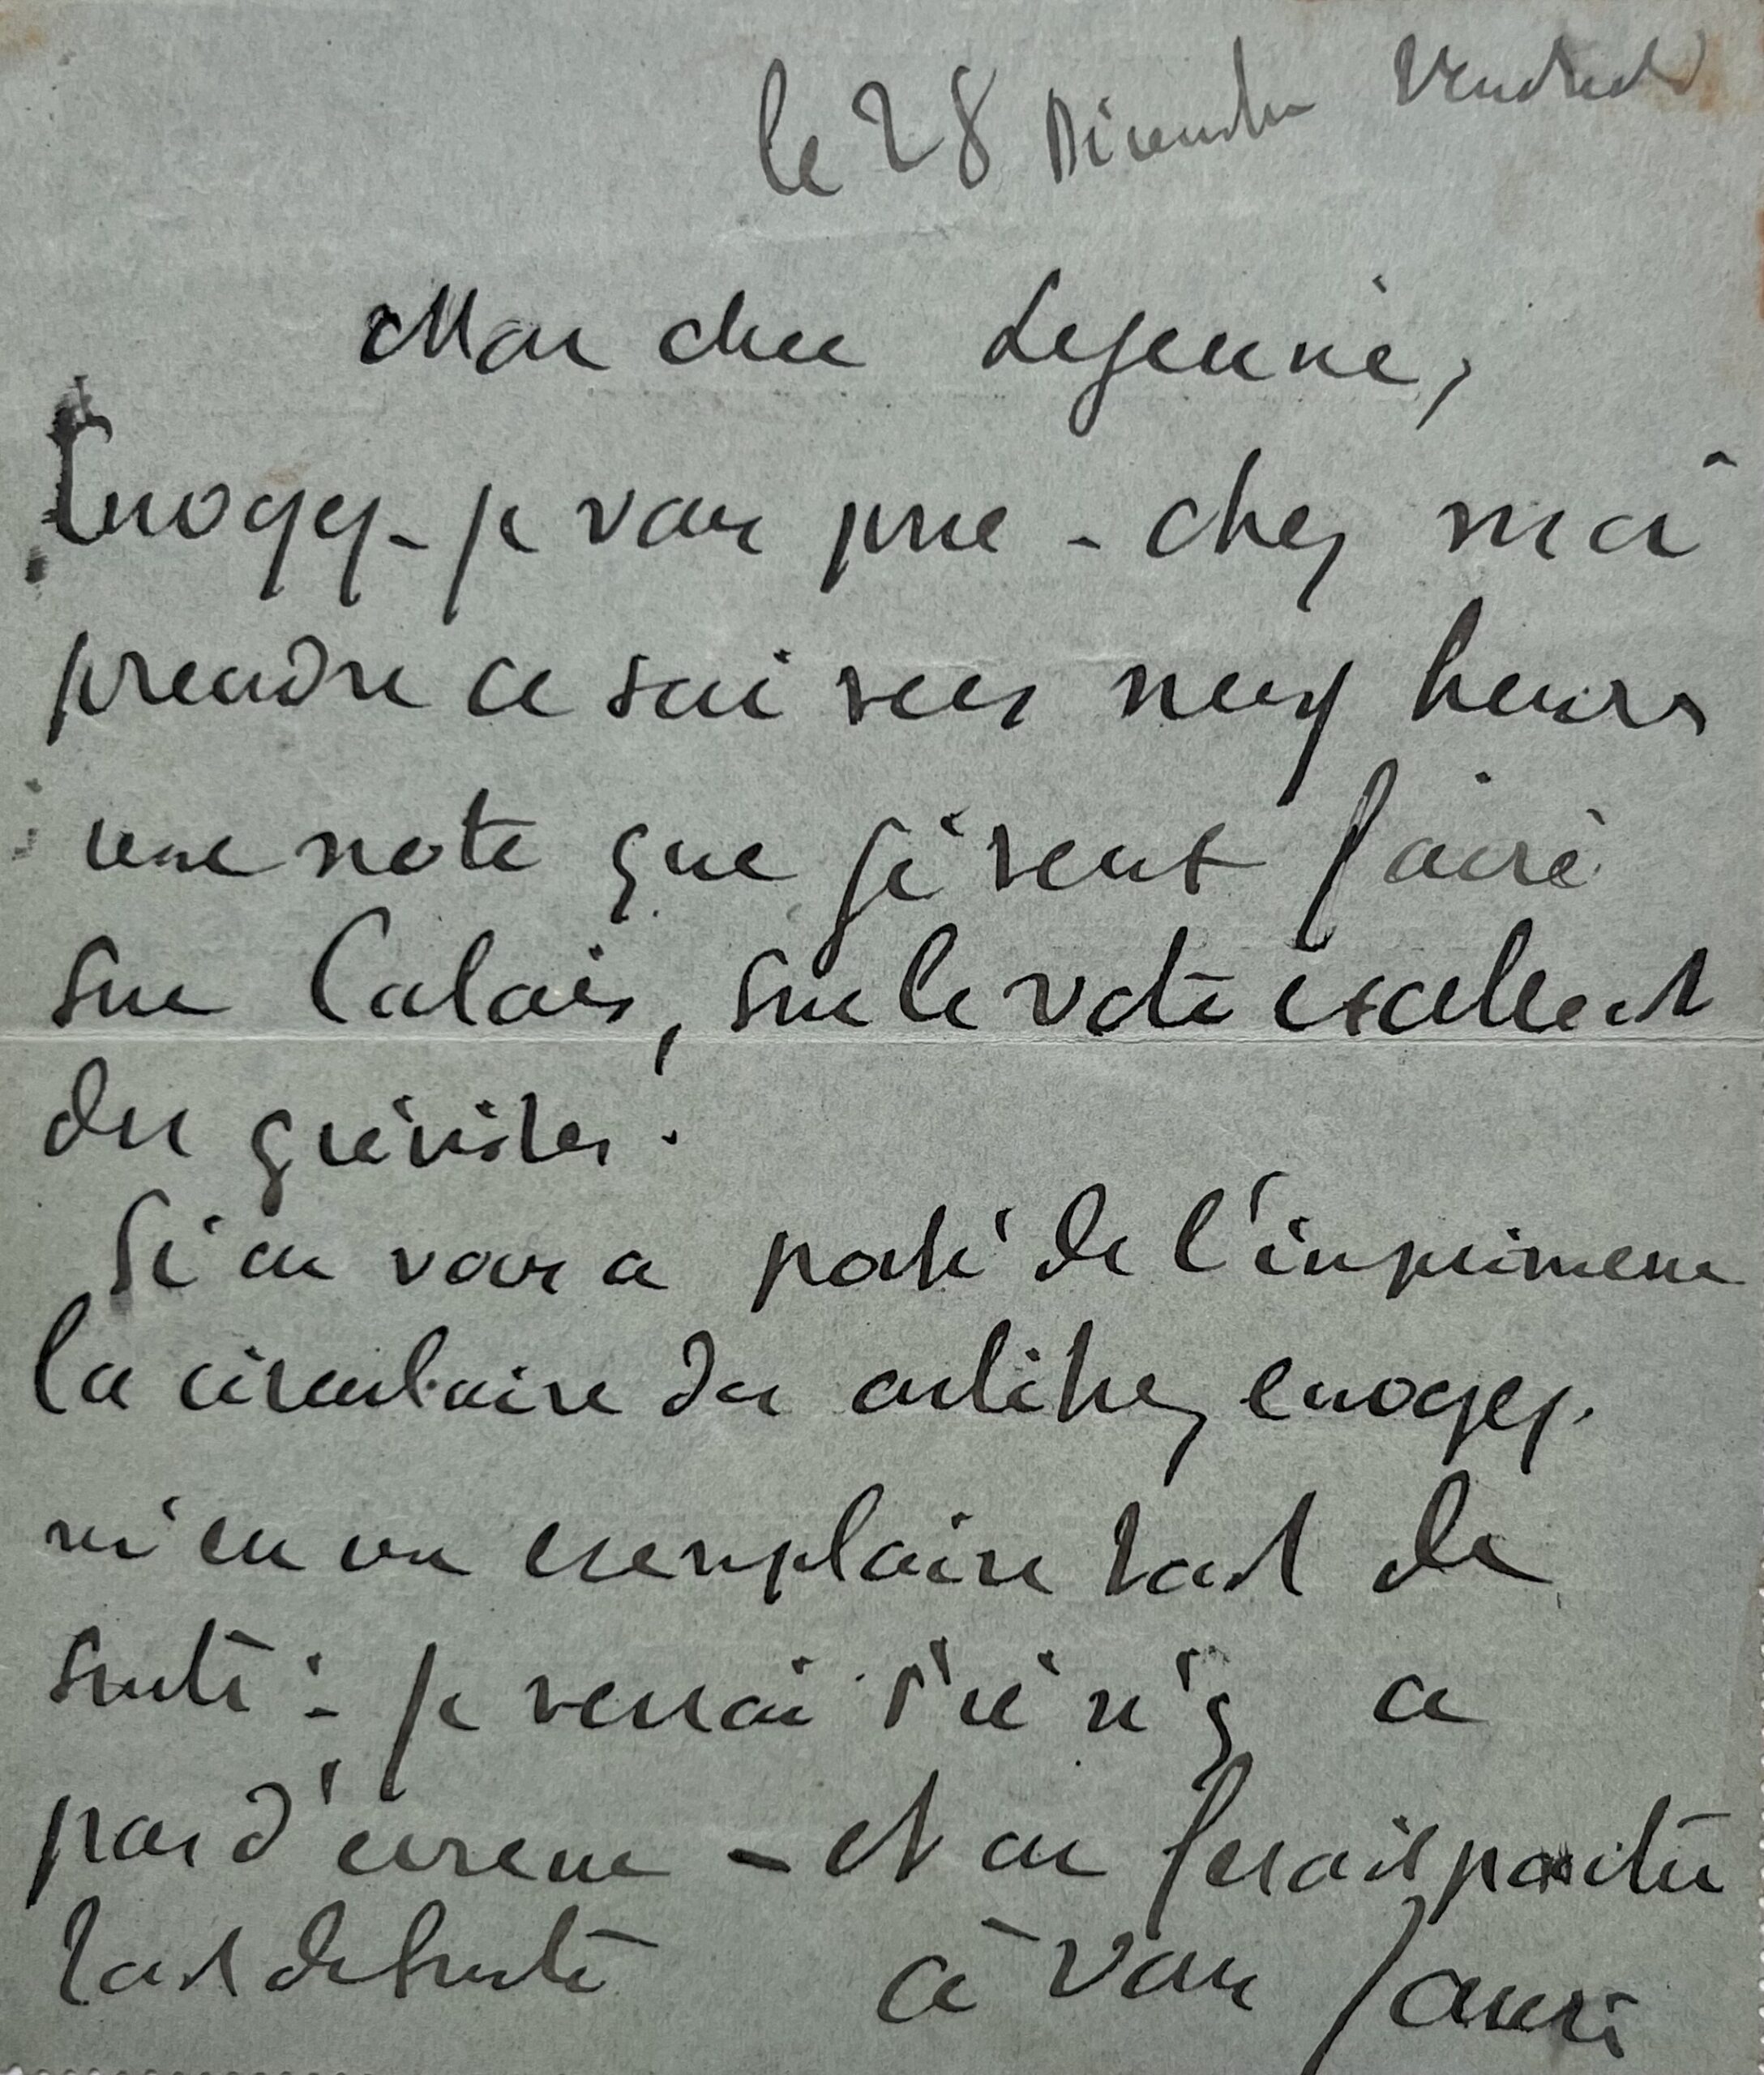 le 28 Décembre Vendredi
Mon cher Lejeune,
Envoyez - je vous prie - chez moi
prendre ce soir vers neuf heures
une note que je veux faire
sur Calais, sur le vote excellent
des grévistes.
Si on vous a porté de l'imprimerie
la circulaire des arbitres, envoyez
m'en un exemplaire tout de
suite : je verrai s'il n'y a
pas d'erreur - et on ferait partir
tout de suite à vous Jaurès